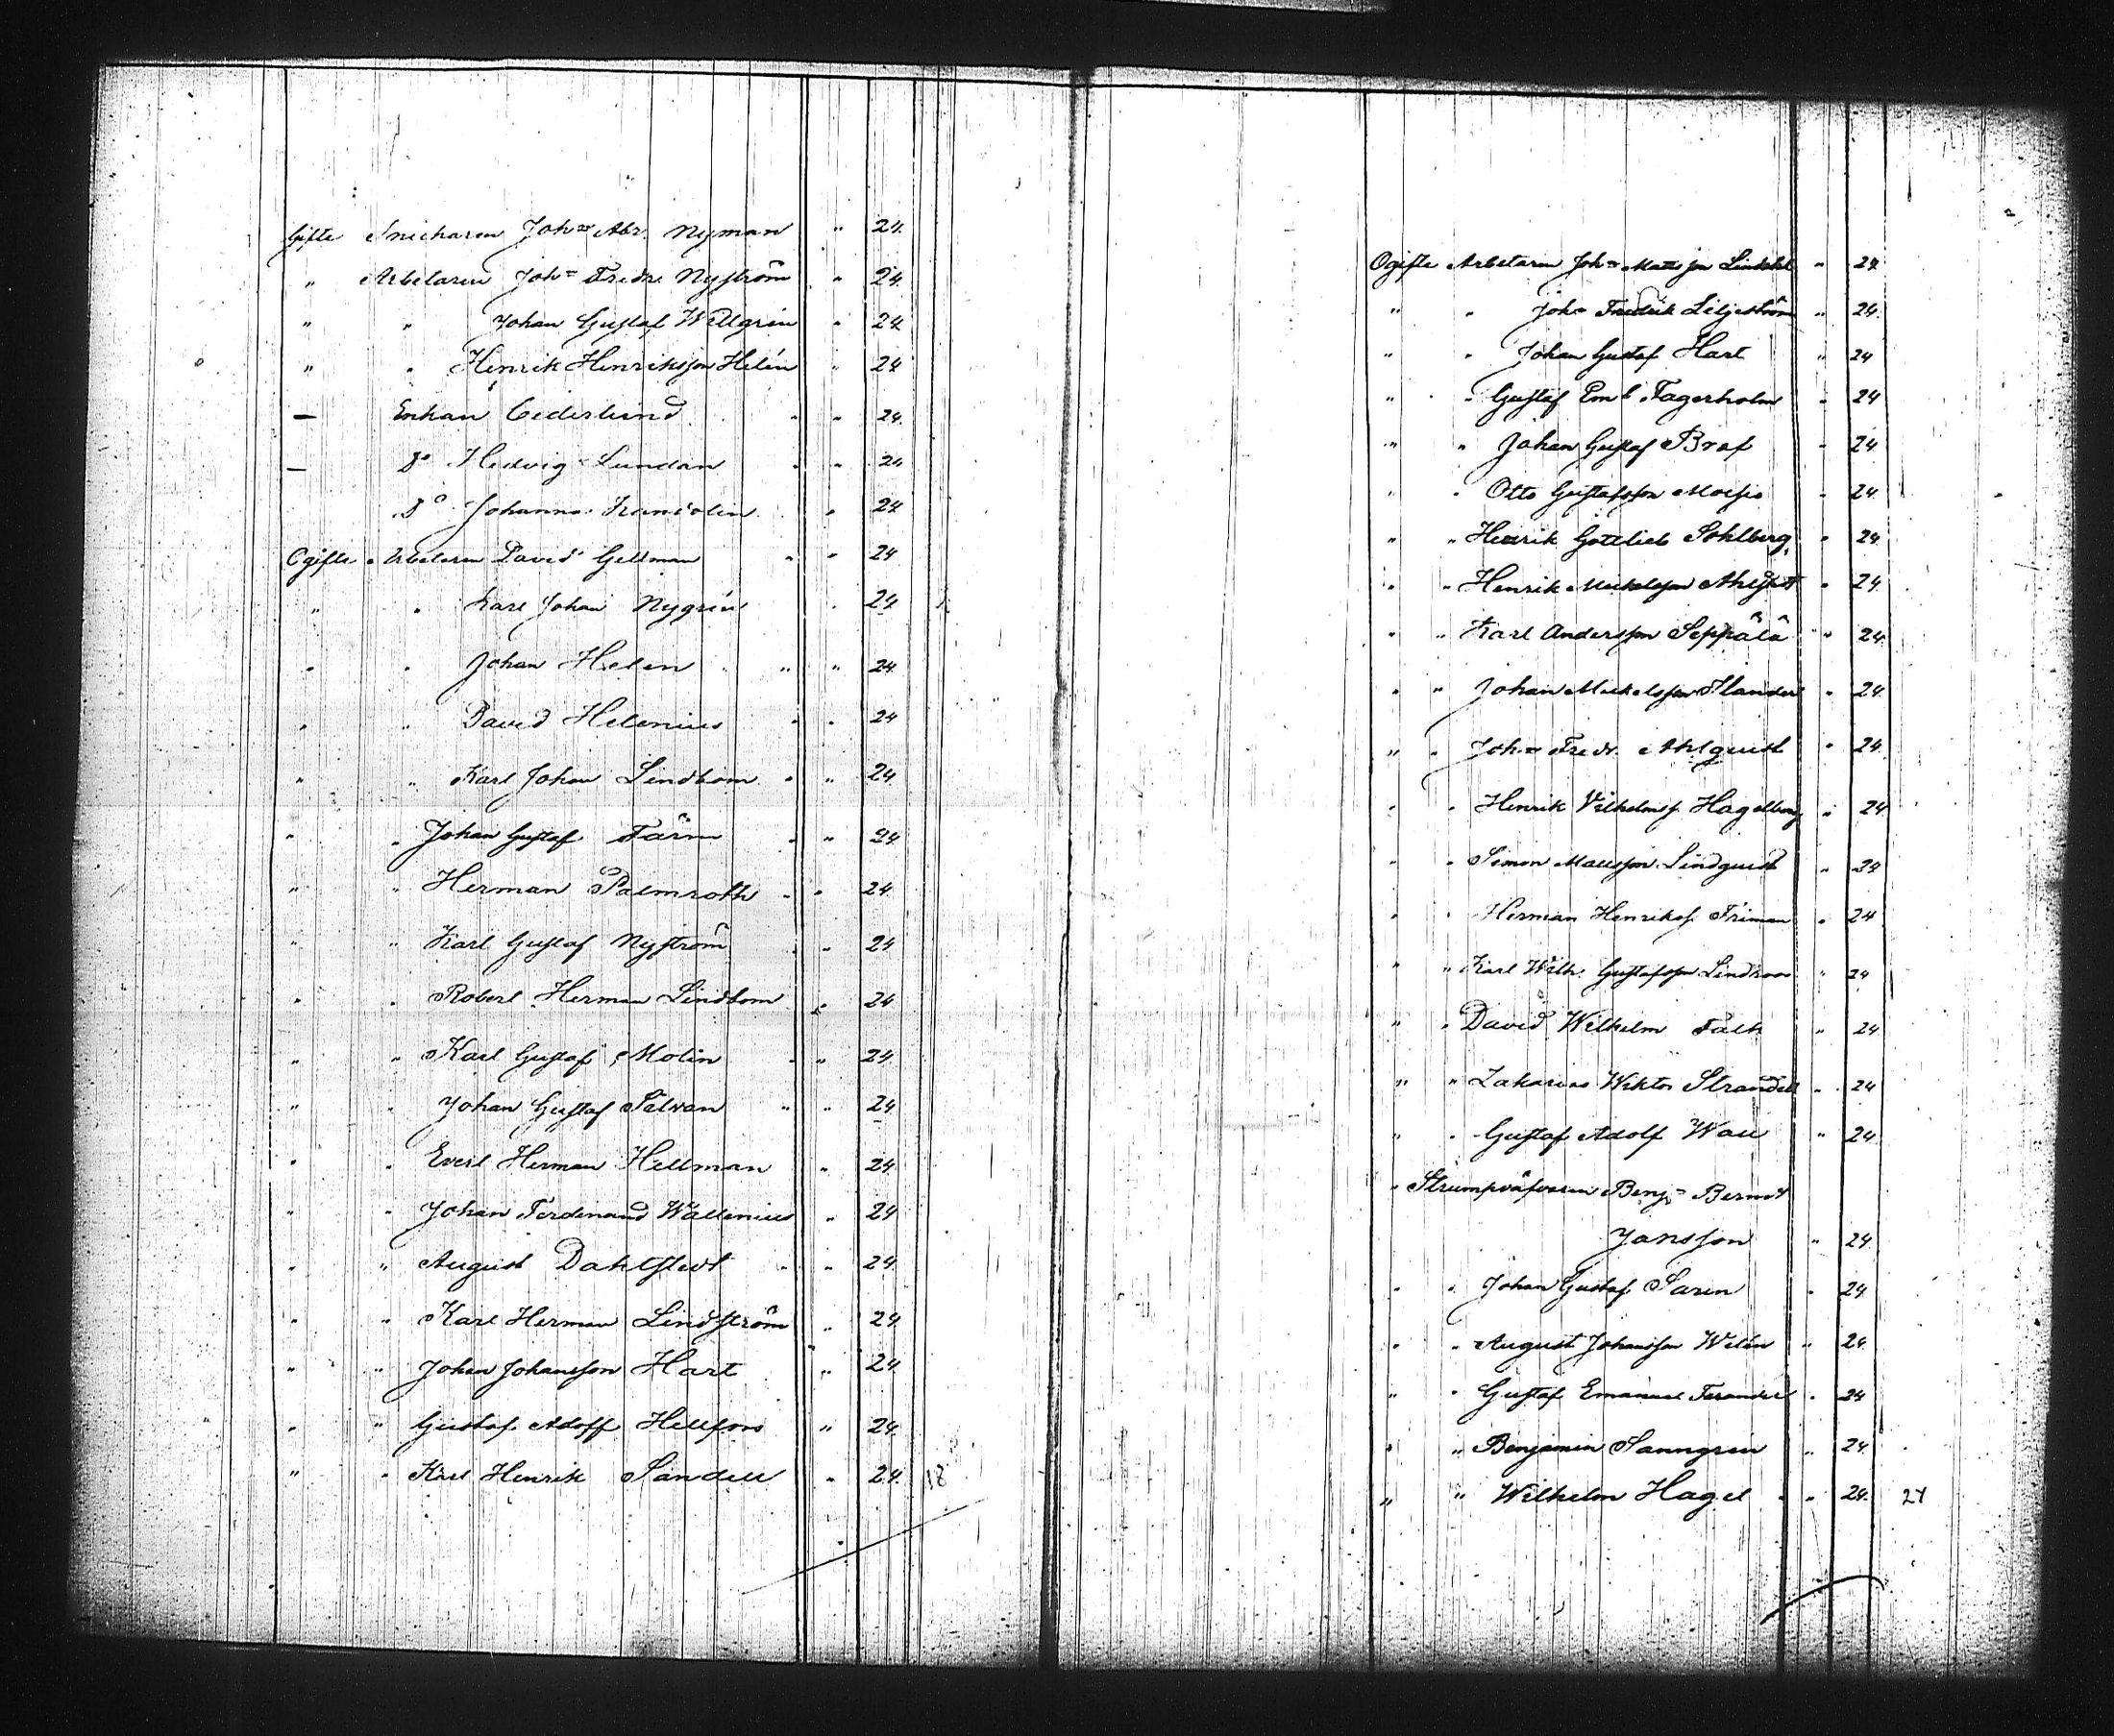 Gifte Snickaren Joh= Abr. Nyman " 24.
" Arbetaren Joh= Fredr. Nyström " 24.
" " Johan Gustaf Willgrén " 24
" " Henrik Henriksson Helén " 24
— Enkan Cederlund " " 24.
— Do Hedvig Lundán " " 24
Do Johanna " 24
Ogifte Arbetaren David Gellman " " 24
" " Karl Johan Nygrén " 24
" " Johan Helen " " 24
" " David Helenius " " 24
" " Karl Johan Lindbom " " 24.
" " Johan Gustaf Färm " " 24.
" " Herman Palmroth " " 24.
" " Karl Gustaf Nyström " " 24
" " Robert Herman Lindbom " 24
" " Karl Gustaf Molin " " 24.
" " Johan Gustaf " " 24
" " Evert Herman Hellman " 24.
" " Johan Ferdinand Wallenius " 24
" " August Dahlstedt " " 24.
" " Karl Herman Lindström " 24
" " Johan Johansson Hart " 24.
" " Gustaf Adolf Hellfors " 24.
" " Karl Henrik Sandell " 24. 18
Ogifte Arbetaren Joh= Matsson " 24
" " Joh= Fredrik Liljeström " 24.
" " Johan Gustaf Hart " 24
" " Gustaf Em l Fagerholm " 24
" " Johan Gustaf Braf " 24
" " Otto Gustafsson " 24
" " Henrik Gottlieb Sohlberg " 24.
" " Henrik Mickelsson " 24.
" " Karl Andersson Seppälä " " 24.
" " Johan Mickelsson Flander " 24.
" " Joh= Fredr. Ahlquist " 24.
" " Henrik Vilhelmss. Hagelberg " 24
" " Simon Mattsson Lindquist " 24
" " Herman Henrikss. Friman " 24
" " Karl Wilh. Gustafsson Lindroos " 24
" " David Wilhelm Falk " 24
" " Zakarias Viktor Strandell " 24
" " Gustaf Adolf Wall " 24
" Strumpväfvaren Benj= Berndt
Jansson " 24.
" " Johan Gustaf Saren " 24
" " August Johansson Welén " 24.
" " Gustaf Emanuel " 24
" " Benjamin Sanngren " 24.
" " Wilhelm Hagel " " 24. 27